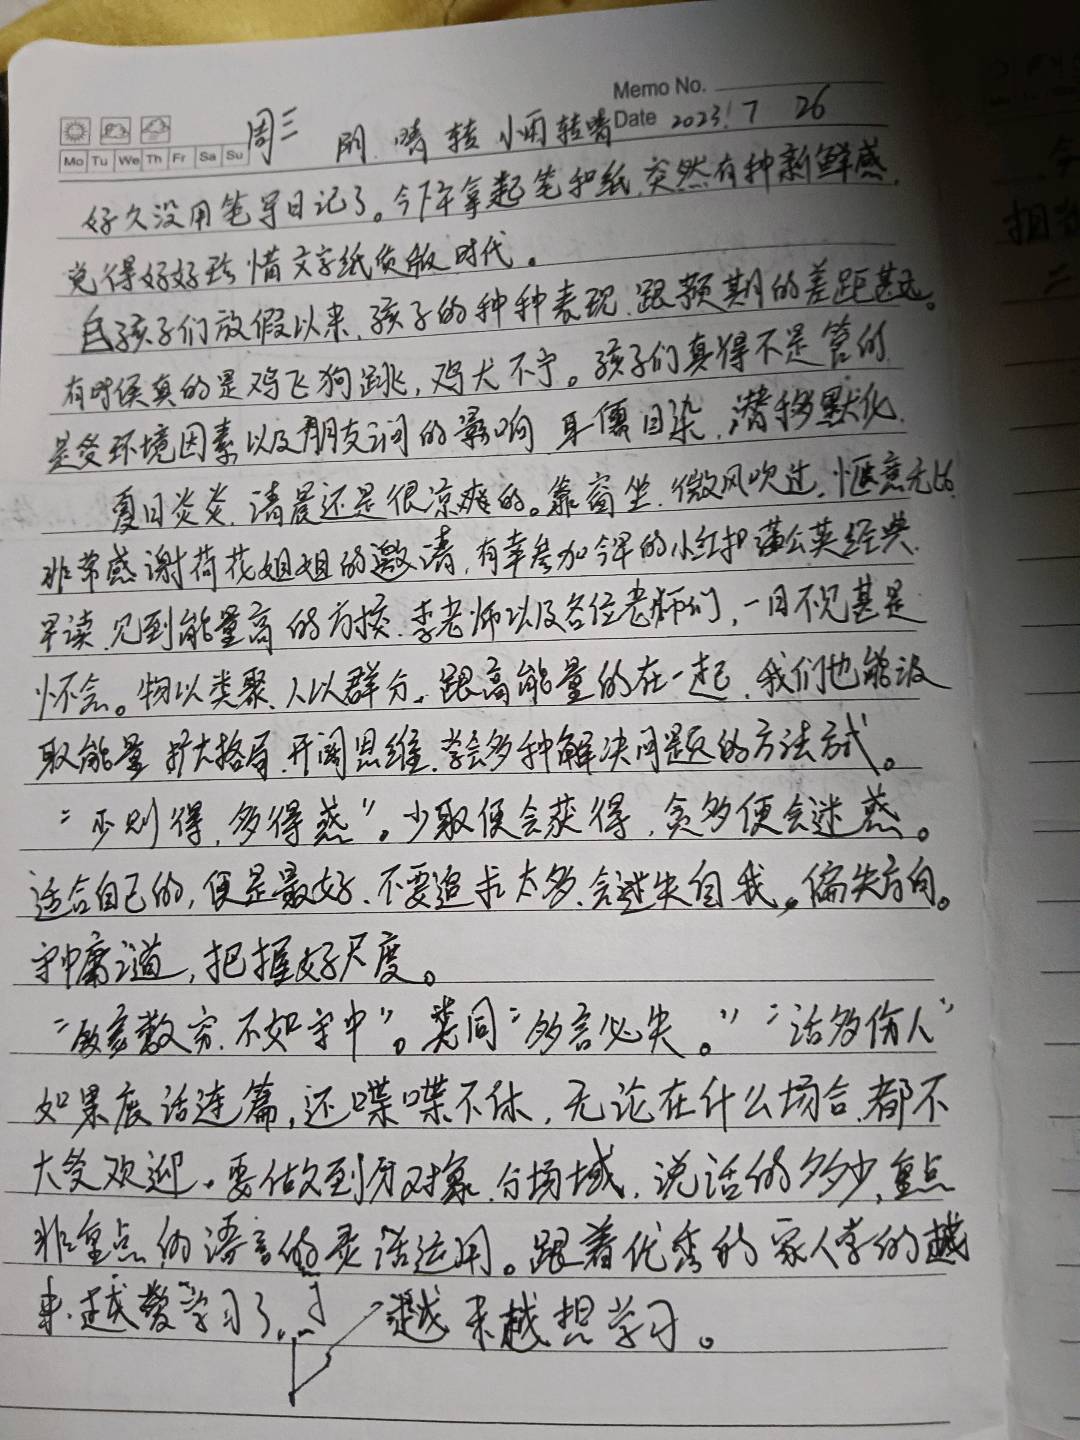 Memo No.
Date 2023.7 26
Mo Tu We Th Fr Sa Su
周三 阴 晴转小雨转晴
好久没用笔写日记了。今下午拿起笔和纸,突然有种新鲜感,
觉得好好珍惜文字纸质版时代。
自孩子们放假以来,孩子的种种表现,跟预期的差距甚远。
有时候真的是鸡飞狗跳,鸡犬不宁。孩子们真得不是管的,
是受环境因素以及朋友之间的影响 耳儒目染,潜移默化.
夏日炎炎,清晨还是很凉爽的。靠窗坐,微风吹过,惬意无比.
非常感谢荷花姐姐的邀请,有幸参加今早的小红护蒲公英经典.
早读,见到能量高的 李老师以及各位老师们,一日不见甚是
怀念。物以类聚,人以群分。跟高能量的在一起,我们也能汲
取能量 扩大格局,开阔思维,学会多种解决问题的方法方式。
“少则得,多得惑”。少取便会获得,贪多便会迷惑。
适合自己的,便是最好,不要追求太多,会迷失自我,偏失方向。
守中庸之道,把握好尺度。
“多言数穷,不如守中”。类同“多言必失。”“话多伤人”
如果废话连篇,还喋喋不休,无论在什么场合,都不
大受欢迎。要做到分对象,分场域,说话的多少,重点
非重点的语言的灵活运用。跟着优秀的家人学的越
来越爱学习了,越来越想学习。